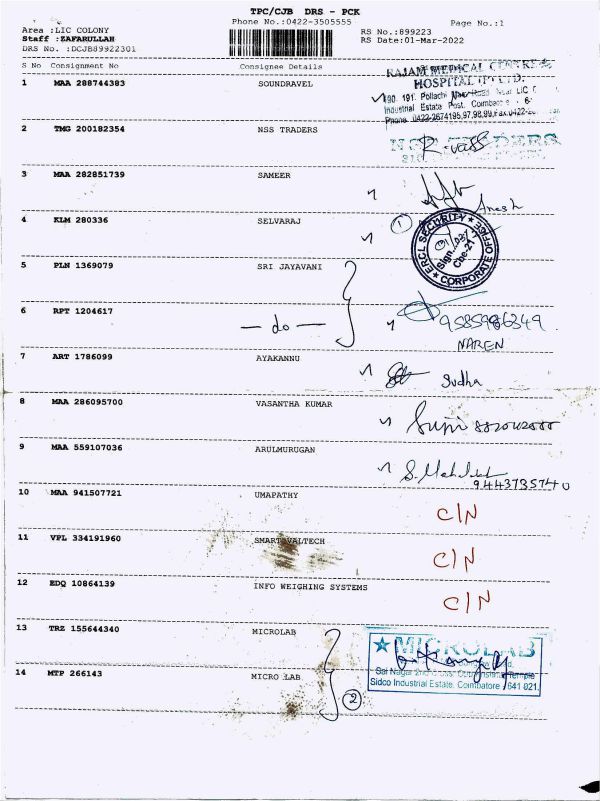 TPC/CJB DRS - PCK
Phone No.:0422-3505555
Page No.:1
Area :LIC COLONY
Staff :ZAFARULLAH
DRS No. :DCJB89922301
RS No.:899223
RS Date:01-Mar-2022
S No Consignment No Consignee Details
1 MAA 288744383 SOUNDRAVEL
RAJAM MEDICAL CENTRE &
HOSPITAL (P) LTD.
190, 191, Pollachi Main Road, Near LIC
Industrial Estate Post, Coimbatore
Phone 0422-2674195,97,98,99,Fax:0422-
2 TMG 200182354 NSS TRADERS
NSS TRADERS
3 MAA 282851739 SAMEER
4 KLM 280336 SELVARAJ
1
ERCL SECURITY
Sign.
Cbe-21
CORPORATE OFFICE
5 PLN 1369079 SRI JAYAVANI
6 RPT 1204617 — do — 9585986349
NAREN
7 ART 1786099 AYAKANNU Sudha
8 MAA 286095700 VASANTHA KUMAR
9 MAA 559107036 ARULMURUGAN
9443735740
10 MAA 941507721 UMAPATHY C/N
11 VPL 334191960 SMART VALTECH C/N
12 EDQ 10864139 INFO WEIGHING SYSTEMS C/N
13 TRZ 155644340 MICROLAB
MICROLAB
Sai Nagar Temple
Sidco Industrial Estate, Coimbatore - 641 021.
14 MTP 266143 MICRO LAB
2